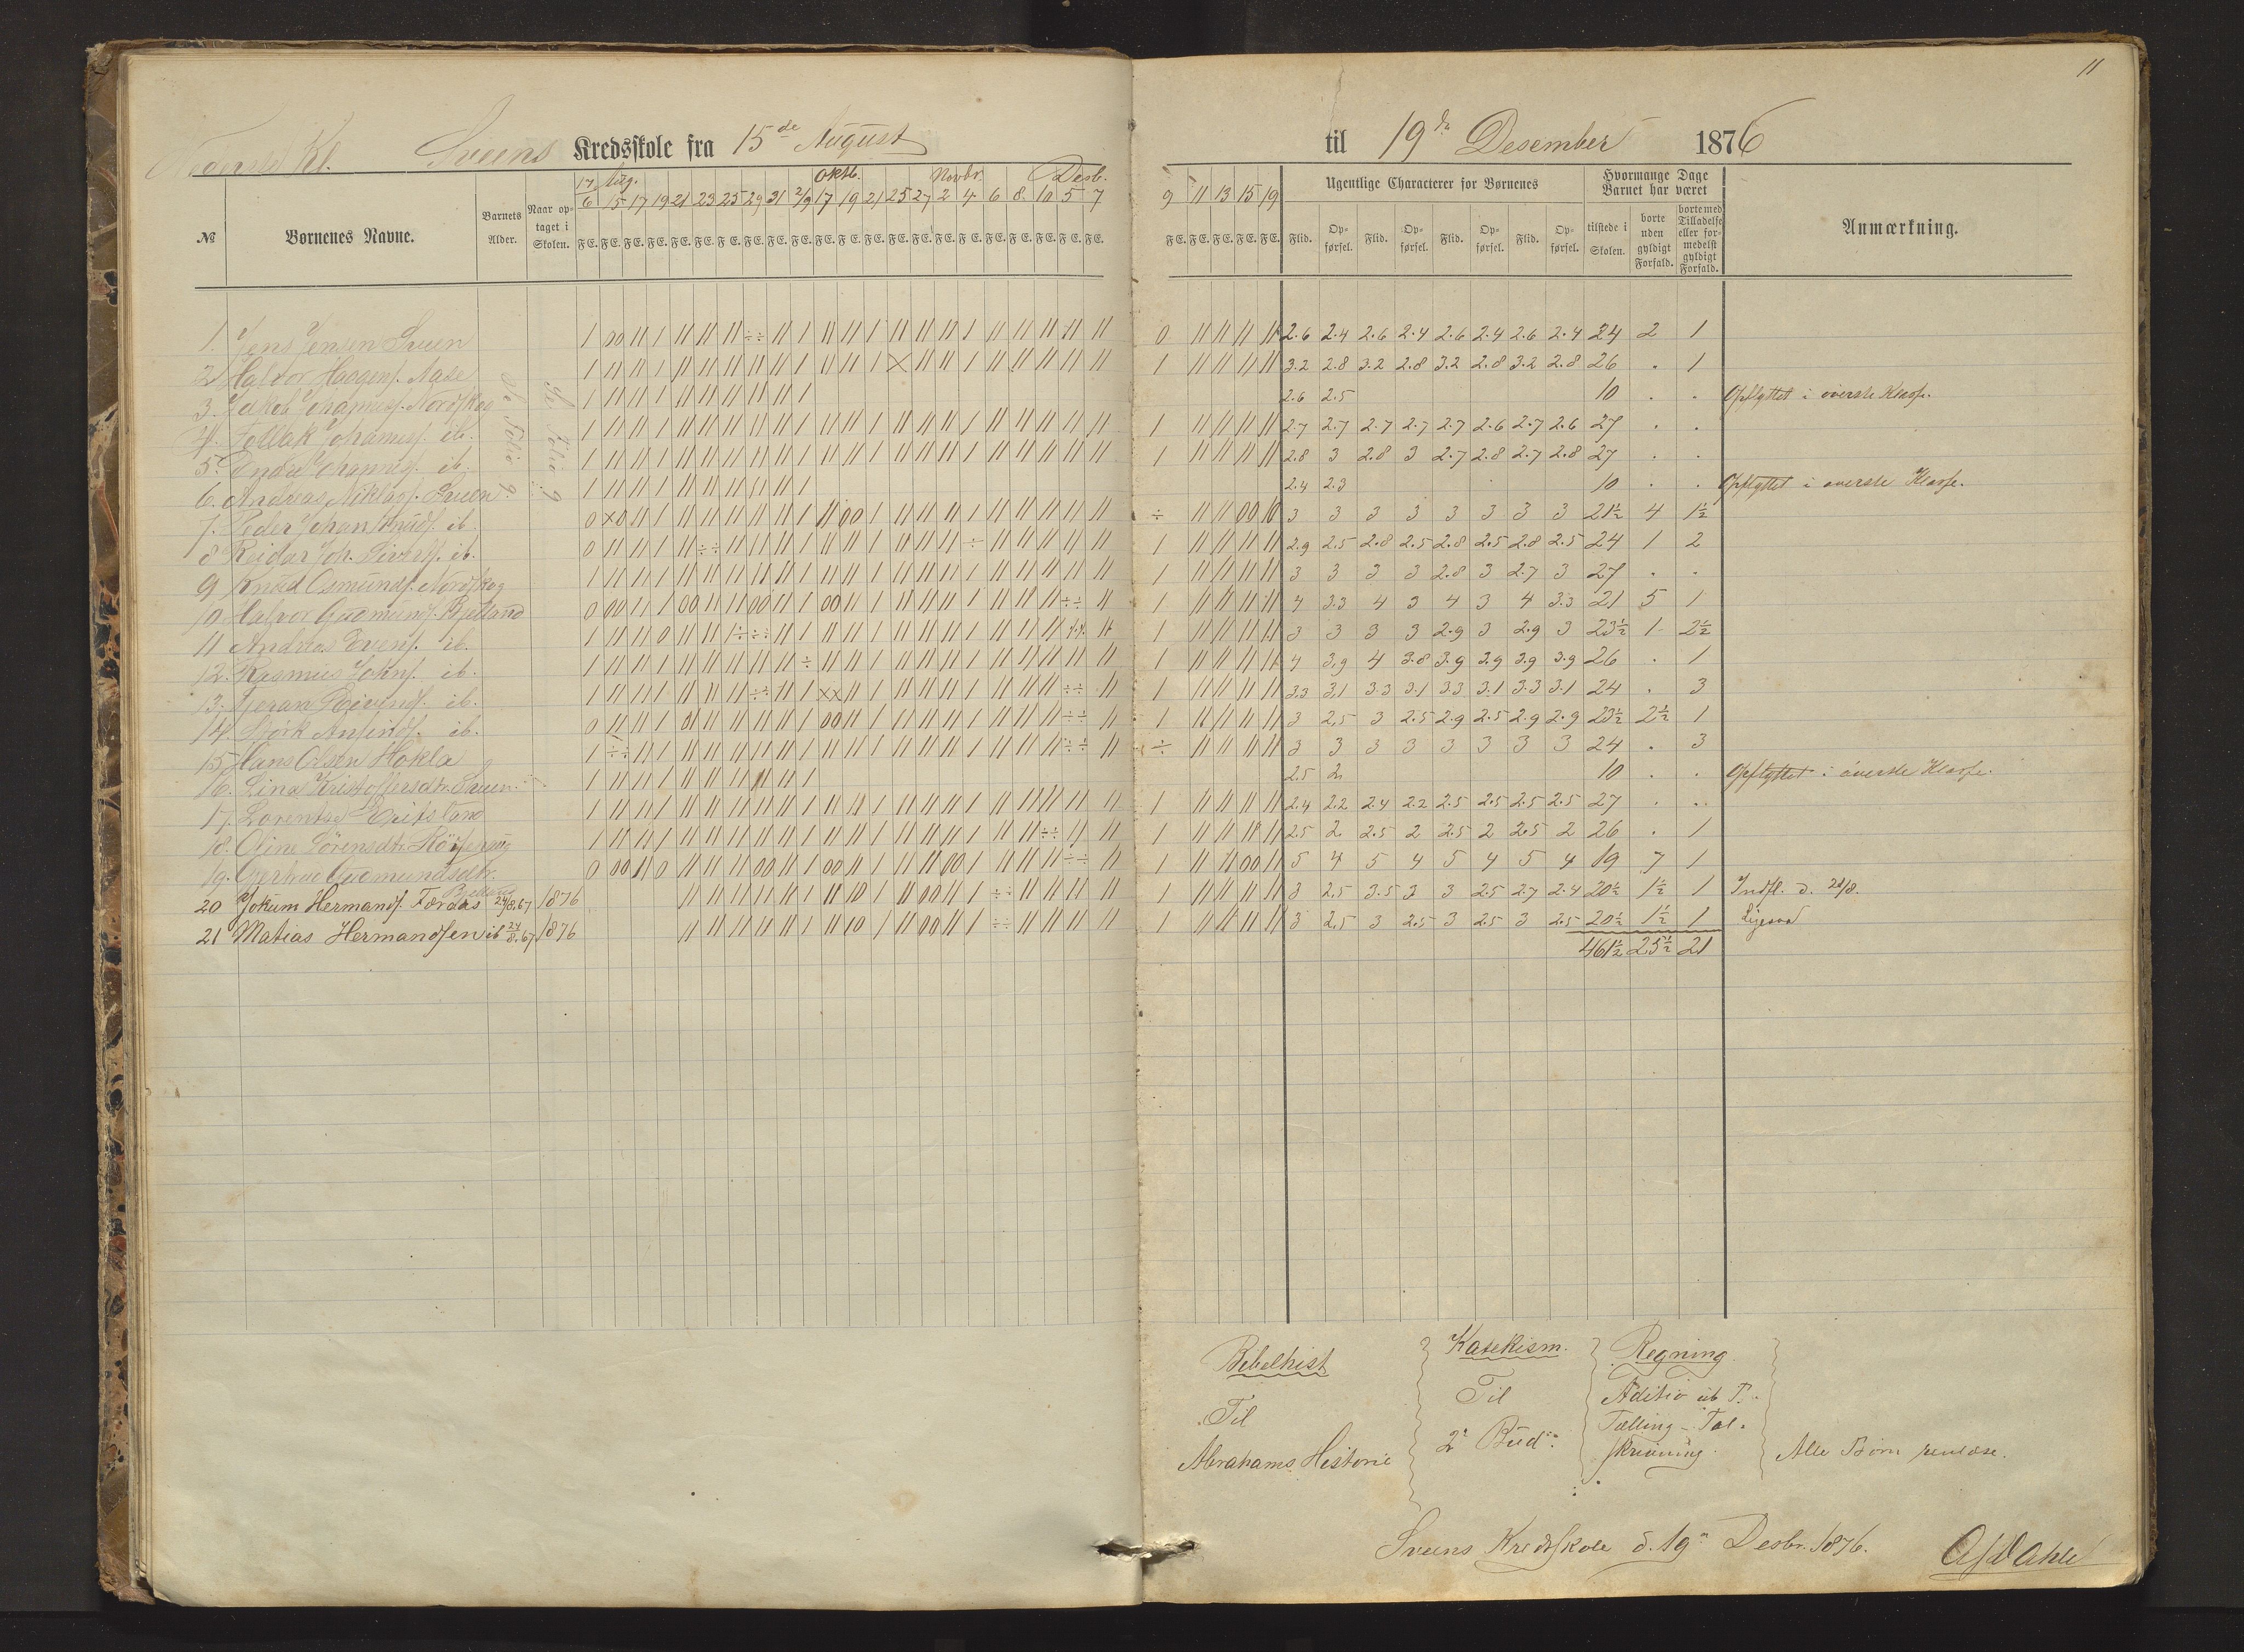 11
Nederste Kl. Sveens Kredsskole fra 15de August til 19de Desember 1876
№ Børnenes Navne. Barnets Alder. Naar optaget i Skolen.
17/6 Aug. 15 17 19 21 23 25 29 31 2/9 Oktb. 17 19 21 25 27 Novbr. 2 4 6 8 10 Desb. 5 7 9 11 13 15 19
F.E. F.E. F.E. F.E. F.E. F.E. F.E. F.E. F.E. F.E. F.E. F.E. F.E. F.E. F.E. F.E. F.E. F.E. F.E. F.E. F.E. F.E. F.E. F.E. F.E. F.E. F.E.
Ugentlige Characterer for Børnenes
Flid. Opførsel. Flid. Opførsel. Flid. Opførsel. Flid. Opførsel.
Hvormange Dage Barnet har været
tilstede i Skolen. borte uden gyldigt Forfald. borte med Tilladelse eller formedelst gyldigt Forfald.
Anmærkning.
Se Folio 9. Se Folio 9
1. Jens Jensen Sveen 2.6 2.4 2.6 2.4 2.6 2.4 2.6 2.4 24 2 1
2. Halvor Haagens. Aase 3.2 2.8 3.2 2.8 3.2 2.8 3.2 2.8 26 . 1
3. Jakob Johanness. Nordskog 2.6 2.5 10 . . Opflyttet i øverste Klasse.
4. Tollak Johanness. ib. 2.7 2.7 2.7 2.7 2.7 2.6 2.7 2.6 27 . .
5. Endre Johanness. ib. 2.8 3 2.8 3 2.7 2.8 2.7 2.8 27 . .
6. Andreas Niklass. Sveen 2.4 2.3 10 . . Opflyttet i øverste Klasse.
7. Peder Johan Knuds. ib. 3 3 3 3 3 3 3 3 21½ 4 1½
8 Reidar Joh. Siverts. ib. 2.9 2.5 2.8 2.5 2.8 2.5 2.8 2.5 24 1 2
9 Knud Osmunds. Nordskog 3 3 3 3 2.8 3 2.7 3 27 . .
10. Halvor Gudmunds. Bjelland 4 3.3 4 3 4 3 4 3.3 21 5 1
11 Andreas Evens. ib. 3 3 3 3 2.9 3 2.9 3 23½ 1. 2½
12. Rasmus Johns. ib. 4 3.9 4 3.8 3.9 3.9 3.9 3.9 26 . 1
13. Gøran Eivinds. ib. 3.3 3.1 3.3 3.1 3.3 3.1 3.3 3.1 24 . 3
14. Størk Ansteins. ib. 3 2.5 3 2.5 2.9 2.5 2.9 2.9 23½ 2½ 1
15. Hans Olsen Hokla 3 3 3 3 3 3 3 3 24 . 3
16. Lina Kristoffersdtr. Sveen 2.5 2 10 . . Opflyttet i øverste Klasse.
17. Lorentse Eritsland 2.4 2.2 2.4 2.2 2.5 2.5 2.5 2.5 27 . .
18. Oline Sørensdtr. 2.5 2 2.5 2 2.5 2 2.5 2 26 . 1
19. Gertrue Gudmundsdtr. Bjelland 5 4 5 4 5 4 5 4 19 7 1
20 Jokum Hermands. Færaas 24/8.67 1876 3 2.5 3.5 3 3 2.5 2.7 2.4 20½ 1½ 1 Indfl. d. 21/8.
21 Matias Hermandsen ib 24/8.67 1876 3 2.5 3 2.5 3 2.5 3 2.5 20½ 1½ 1 Ligesaa
461½ 25½ 21
Bibelhist
Til
Abrahams Historie
Katekism.
Til
2t Bud.
Regning
Aditio ib T.
Tælling - Tal-
skrivning.
Alle Børn
Sveens Kredsskole d. 19de Desbr. 1876. Dahle